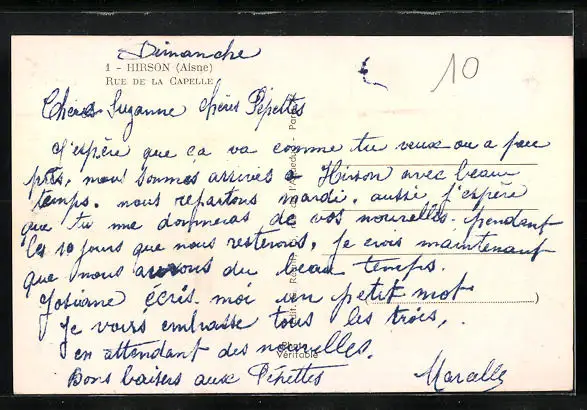 Dimanche
1 - HIRSON (Aisne)
RUE DE LA CAPELLE
10
Chères Suzanne chères Pépettes
J'espère que ça va comme tu veux ou a peu
près, nous sommes arrivés a Hirson avec beau
temps. nous repartons mardi. aussi j'espère
que tu me donneras de vos nouvelles. pendant
les 10 jours que nous resterons. je crois maintenant
que nous aurons du beau temps.
Josiane écris. moi un petit mot
Je vous embrasse tous les trois,
en attendant des nouvelles.
Véritable
Bons baisers aux Pépettes Marcelle